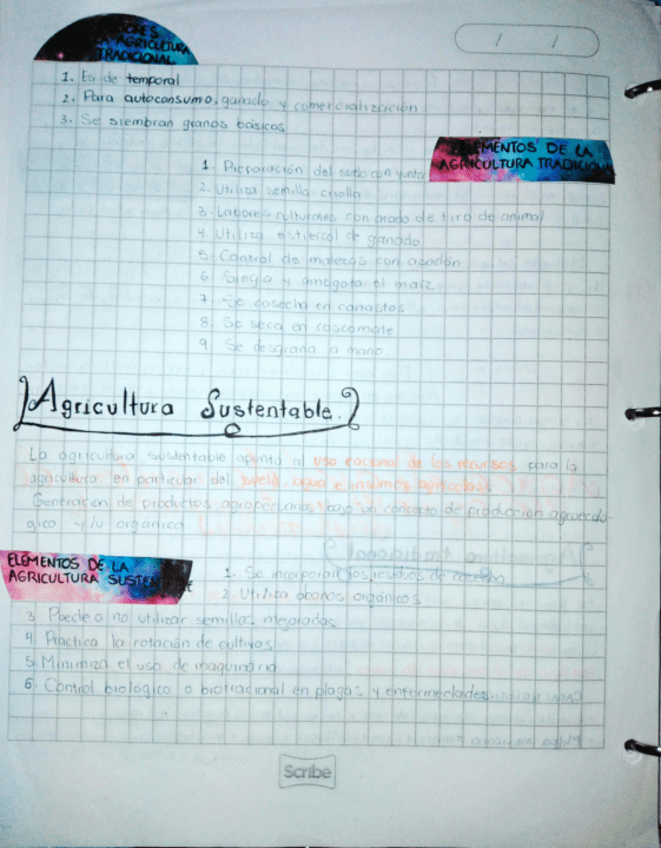 AGRICULTURA
TRADICIONAL
1. Es de temporal
2. Para autoconsumo, ganado y comercialización
3. Se siembran granos básicos
ELEMENTOS DE LA
AGRICULTURA TRADICIONAL
1. Preparación del suelo con yunta
2. Utiliza semilla criolla
3. Labores culturales con arado de tiro de animal
4. Utiliza estiercol de ganado
5. Control de malezas con azadón
6. Siega y amogota el maíz
7. Se cosecha en canastos
8. Se seca en coscomate
9. Se desgrana a mano.
Agricultura Sustentable.
La agricultura sustentable apunta al uso racional de los recursos para la
agricultura en particular del suelo, agua e insumos agrícolas.
Generación de productos agropecuarios bajo un concepto de producción agroecoló-
gico y/u orgánica.
ELEMENTOS DE LA
AGRICULTURA SUSTENTABLE
1. Se incorporan los residuos de cosecha
2. Utiliza abonos orgánicos
3. Puede o no utilizar semillas mejoradas
4. Practica la rotación de cultivos
5. Minimiza el uso de maquinaria
6. Control biológico o biorracional en plagas y enfermedades
Scribe